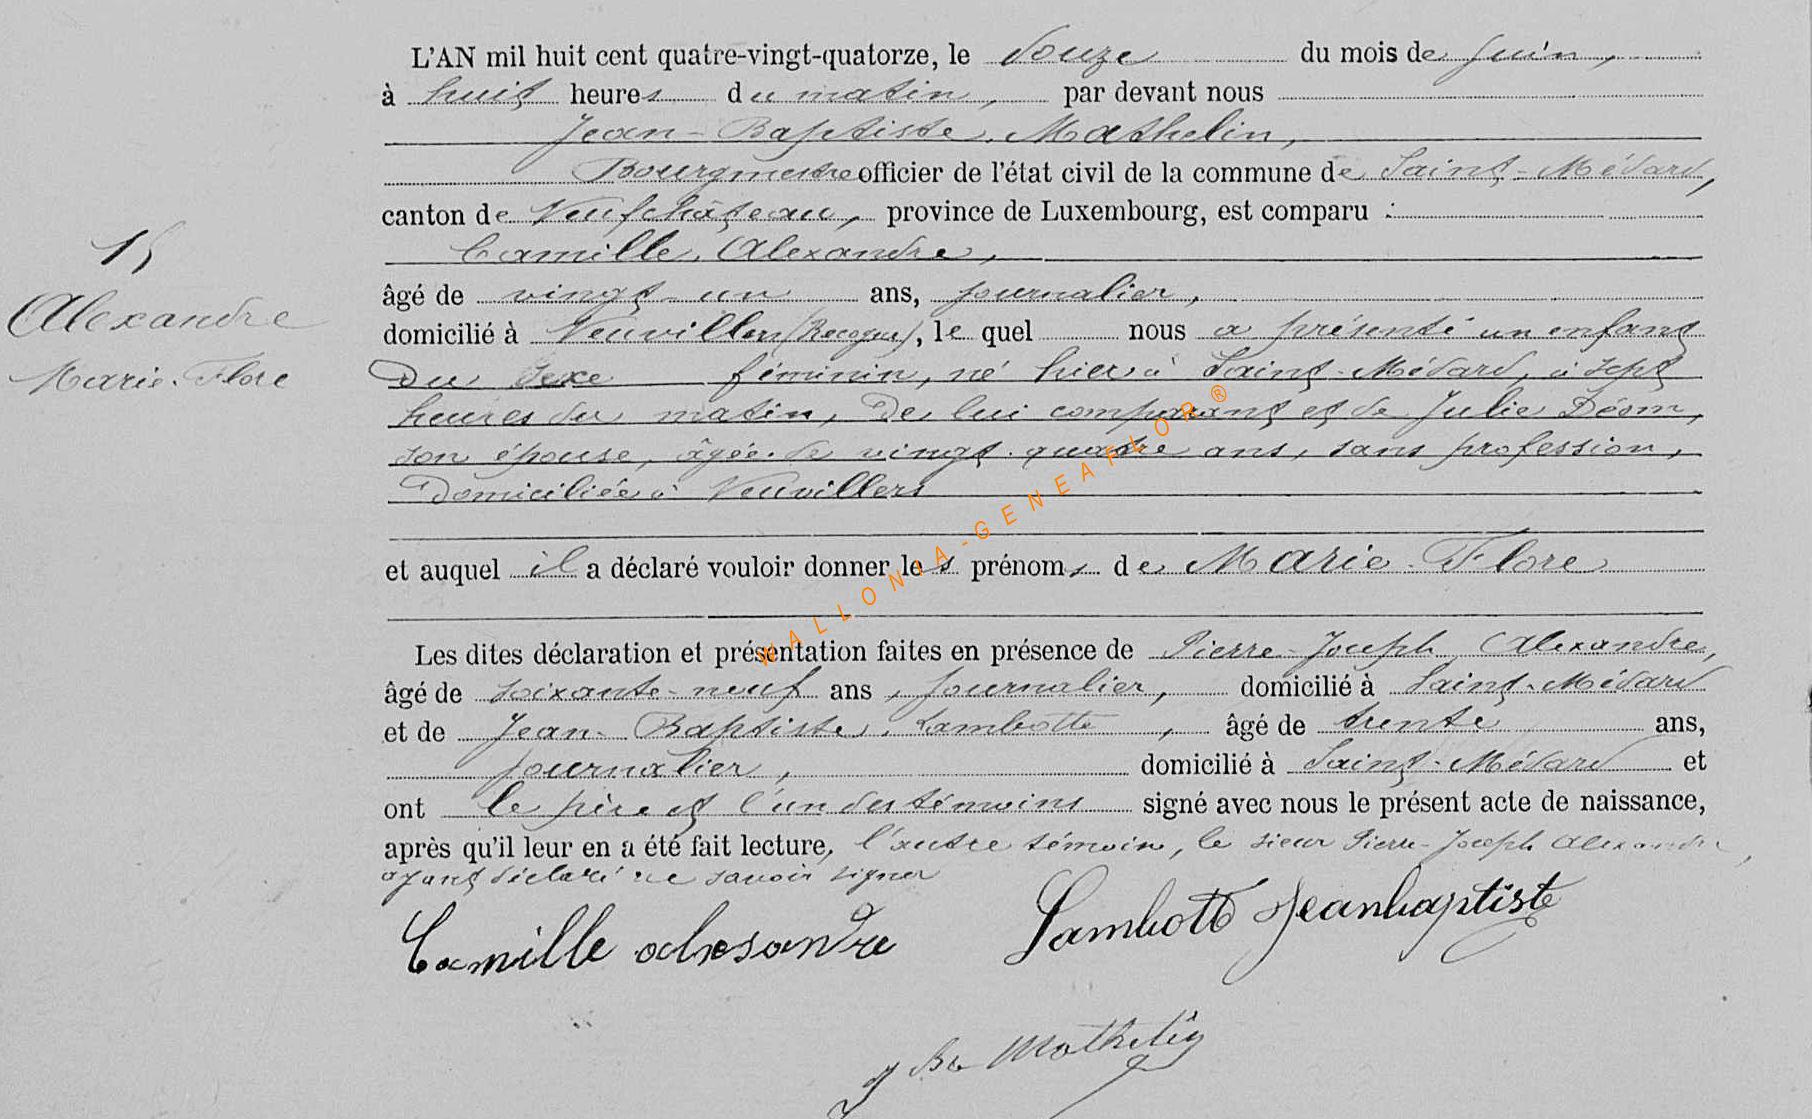 L'AN mil huit cent quatre-vingt-quatorze, le douze du mois de Juin,
à huit heures du matin, par devant nous
Jean-Baptiste Mathelin,
Bourgmestre officier de l'état civil de la commune de Saint-Médard,
canton de Neufchâteau, province de Luxembourg, est comparu :
Camille Alexandre,
âgé de vingt-un ans, journalier,
domicilié à Neuvillers (Recogne), le quel nous a présenté un enfant
Du sexe féminin, né hier à Saint-Médard, à sept
heures du matin, De lui comparant et de Julie Déom,
son épouse, âgée de vingt-quatre ans, sans profession,
Domiciliée à Neuvillers
et auquel il a déclaré vouloir donner les prénoms de Marie-Flore
Les dites déclaration et présentation faites en présence de Pierre-Joseph Alexandre,
âgé de soixante-neuf ans, journalier, domicilié à Saint-Médard
et de Jean-Baptiste Lambotte, âgé de trente ans,
journalier, domicilié à Saint-Médard et
ont le père et l'un des témoins signé avec nous le présent acte de naissance,
après qu'il leur en a été fait lecture, l'autre témoin, le sieur Pierre-Joseph Alexandre,
ayant déclaré ne savoir signer
15
Alexandre
Marie-Flore
Camille alexsandre
Lambott Jeanbaptiste
J Bte Mathelin
WALLONIA-GENEAFLOR®